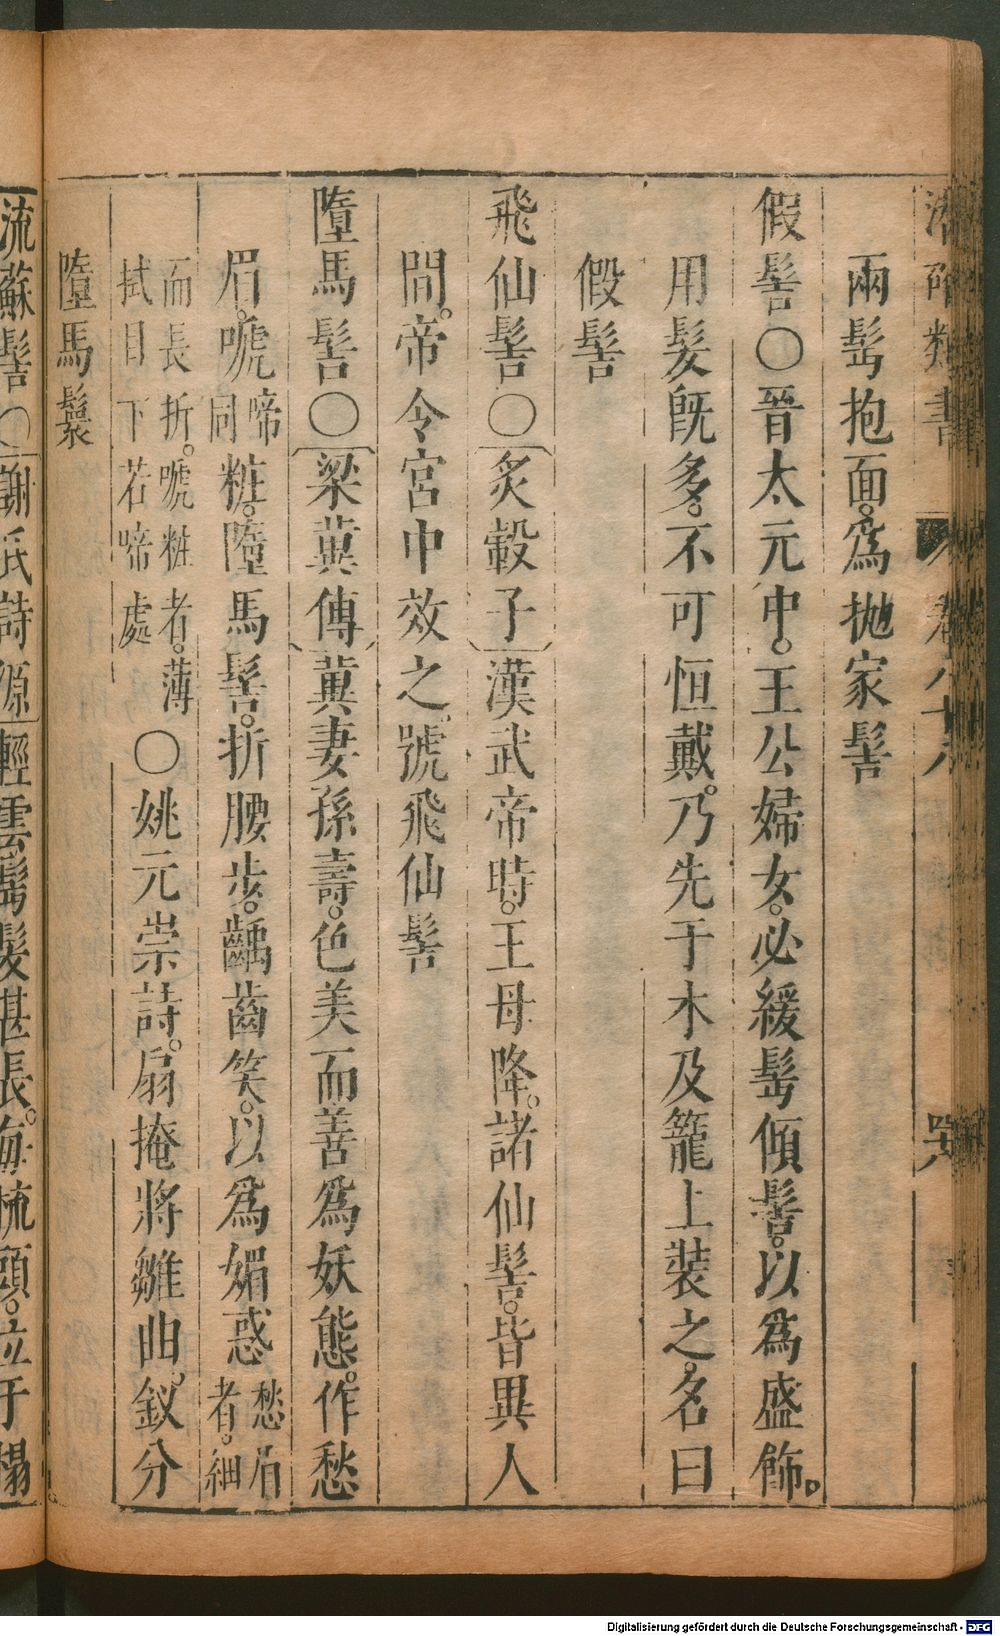 潛確類書 卷八十八 哭
兩髩抱面。爲拋家髻
假髻〇晉太元中。王公婦女。必緩髩傾髻。以爲盛飾。
用髮旣多。不可恒戴。乃先于木及籠上裝之。名曰
假髻
飛仙髻〇炙轂子漢武帝時。王母降。諸仙髻。皆異人
間。帝令宮中效之。號飛仙髻
墮馬髻〇梁冀傳冀妻孫壽。色美而善爲妖態。作愁
眉。嗁啼同粧。墮馬髻。折腰步。齲齒笑。以爲媚惑愁眉者。細
而長折。嗁粧者。薄拭目下若啼處〇姚元崇詩。扇掩將雛曲。釵分
墮馬鬟
流蘇髻〇謝氏詩源輕雲鬂髮甚長。每梳頭。立于榻
Digitalisierung gefördert durch die Deutsche Forschungsgemeinschaft - DFG